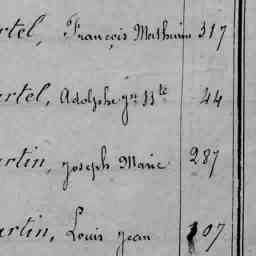 rtel, François Mathurin 317
rtel, Adolphe 44
artin, Joseph Marie 287
artin, Louis Jean 107